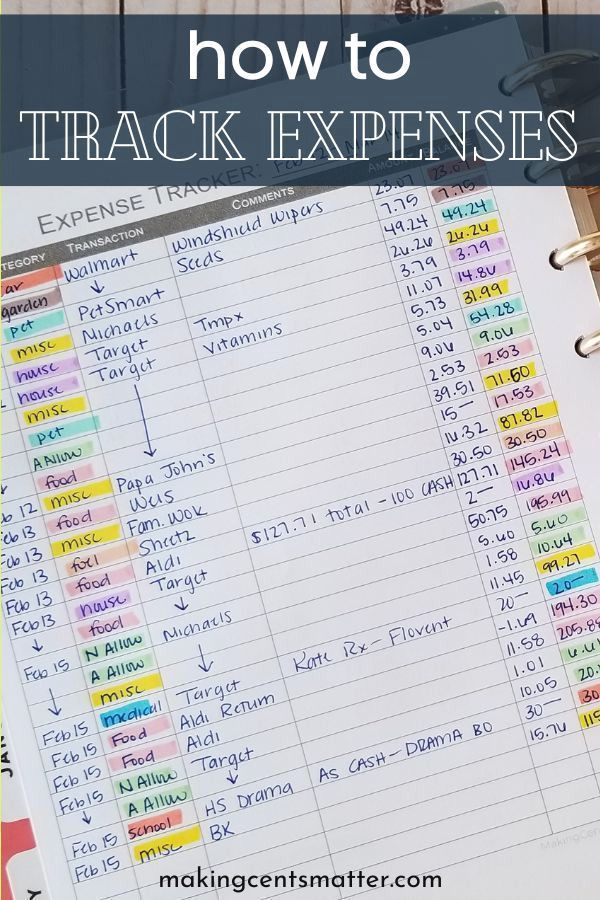 how to
TRACK EXPENSES
EXPENSE TRACKER: Feb
TEGORY TRANSACTION COMMENTS AMOUNT BALANCE
ar Walmart Windshield Wipers 23.07 23.07
garden ↓ Seeds 7.75 7.75
pet PetSmart 49.24 49.24
misc Michaels 26.26 26.26
house Target Tmpx 3.79 3.79
house Target Vitamins 11.07 14.86
misc 5.73 31.99
pet 5.04 54.28
A Allow 9.06 9.06
food ↓ 2.53 2.53
b 12 misc Papa John's 39.51 71.50
Feb 13 food Weis 15— 17.53
Feb 13 misc Fam. Wok 16.32 87.82
Feb 13 fuel Sheetz 30.50 30.50
Feb 13 food Aldi $127.71 total - 100 CASH 127.71 145.24
Feb 13 house Target 2— 16.86
↓ food ↓ 50.75 195.99
Feb 15 N Allow Michaels 5.60 5.60
A Allow 1.58 10.64
↓ misc ↓ 11.45 99.27
Feb 15 medical Target Kate Rx - Flovent 20— 20—
Feb 15 Food Aldi Return -1.69 194.30
Feb 15 Food Aldi 11.58 205.88
Feb 15 N Allow Target 1.01 6.61
↓ A Allow ↓ 10.05 20.
Feb 15 school HS Drama AS CASH - DRAMA BO 30— 30
Feb 15 misc BK 15.76 115
MakingCen
makingcentsmatter.com